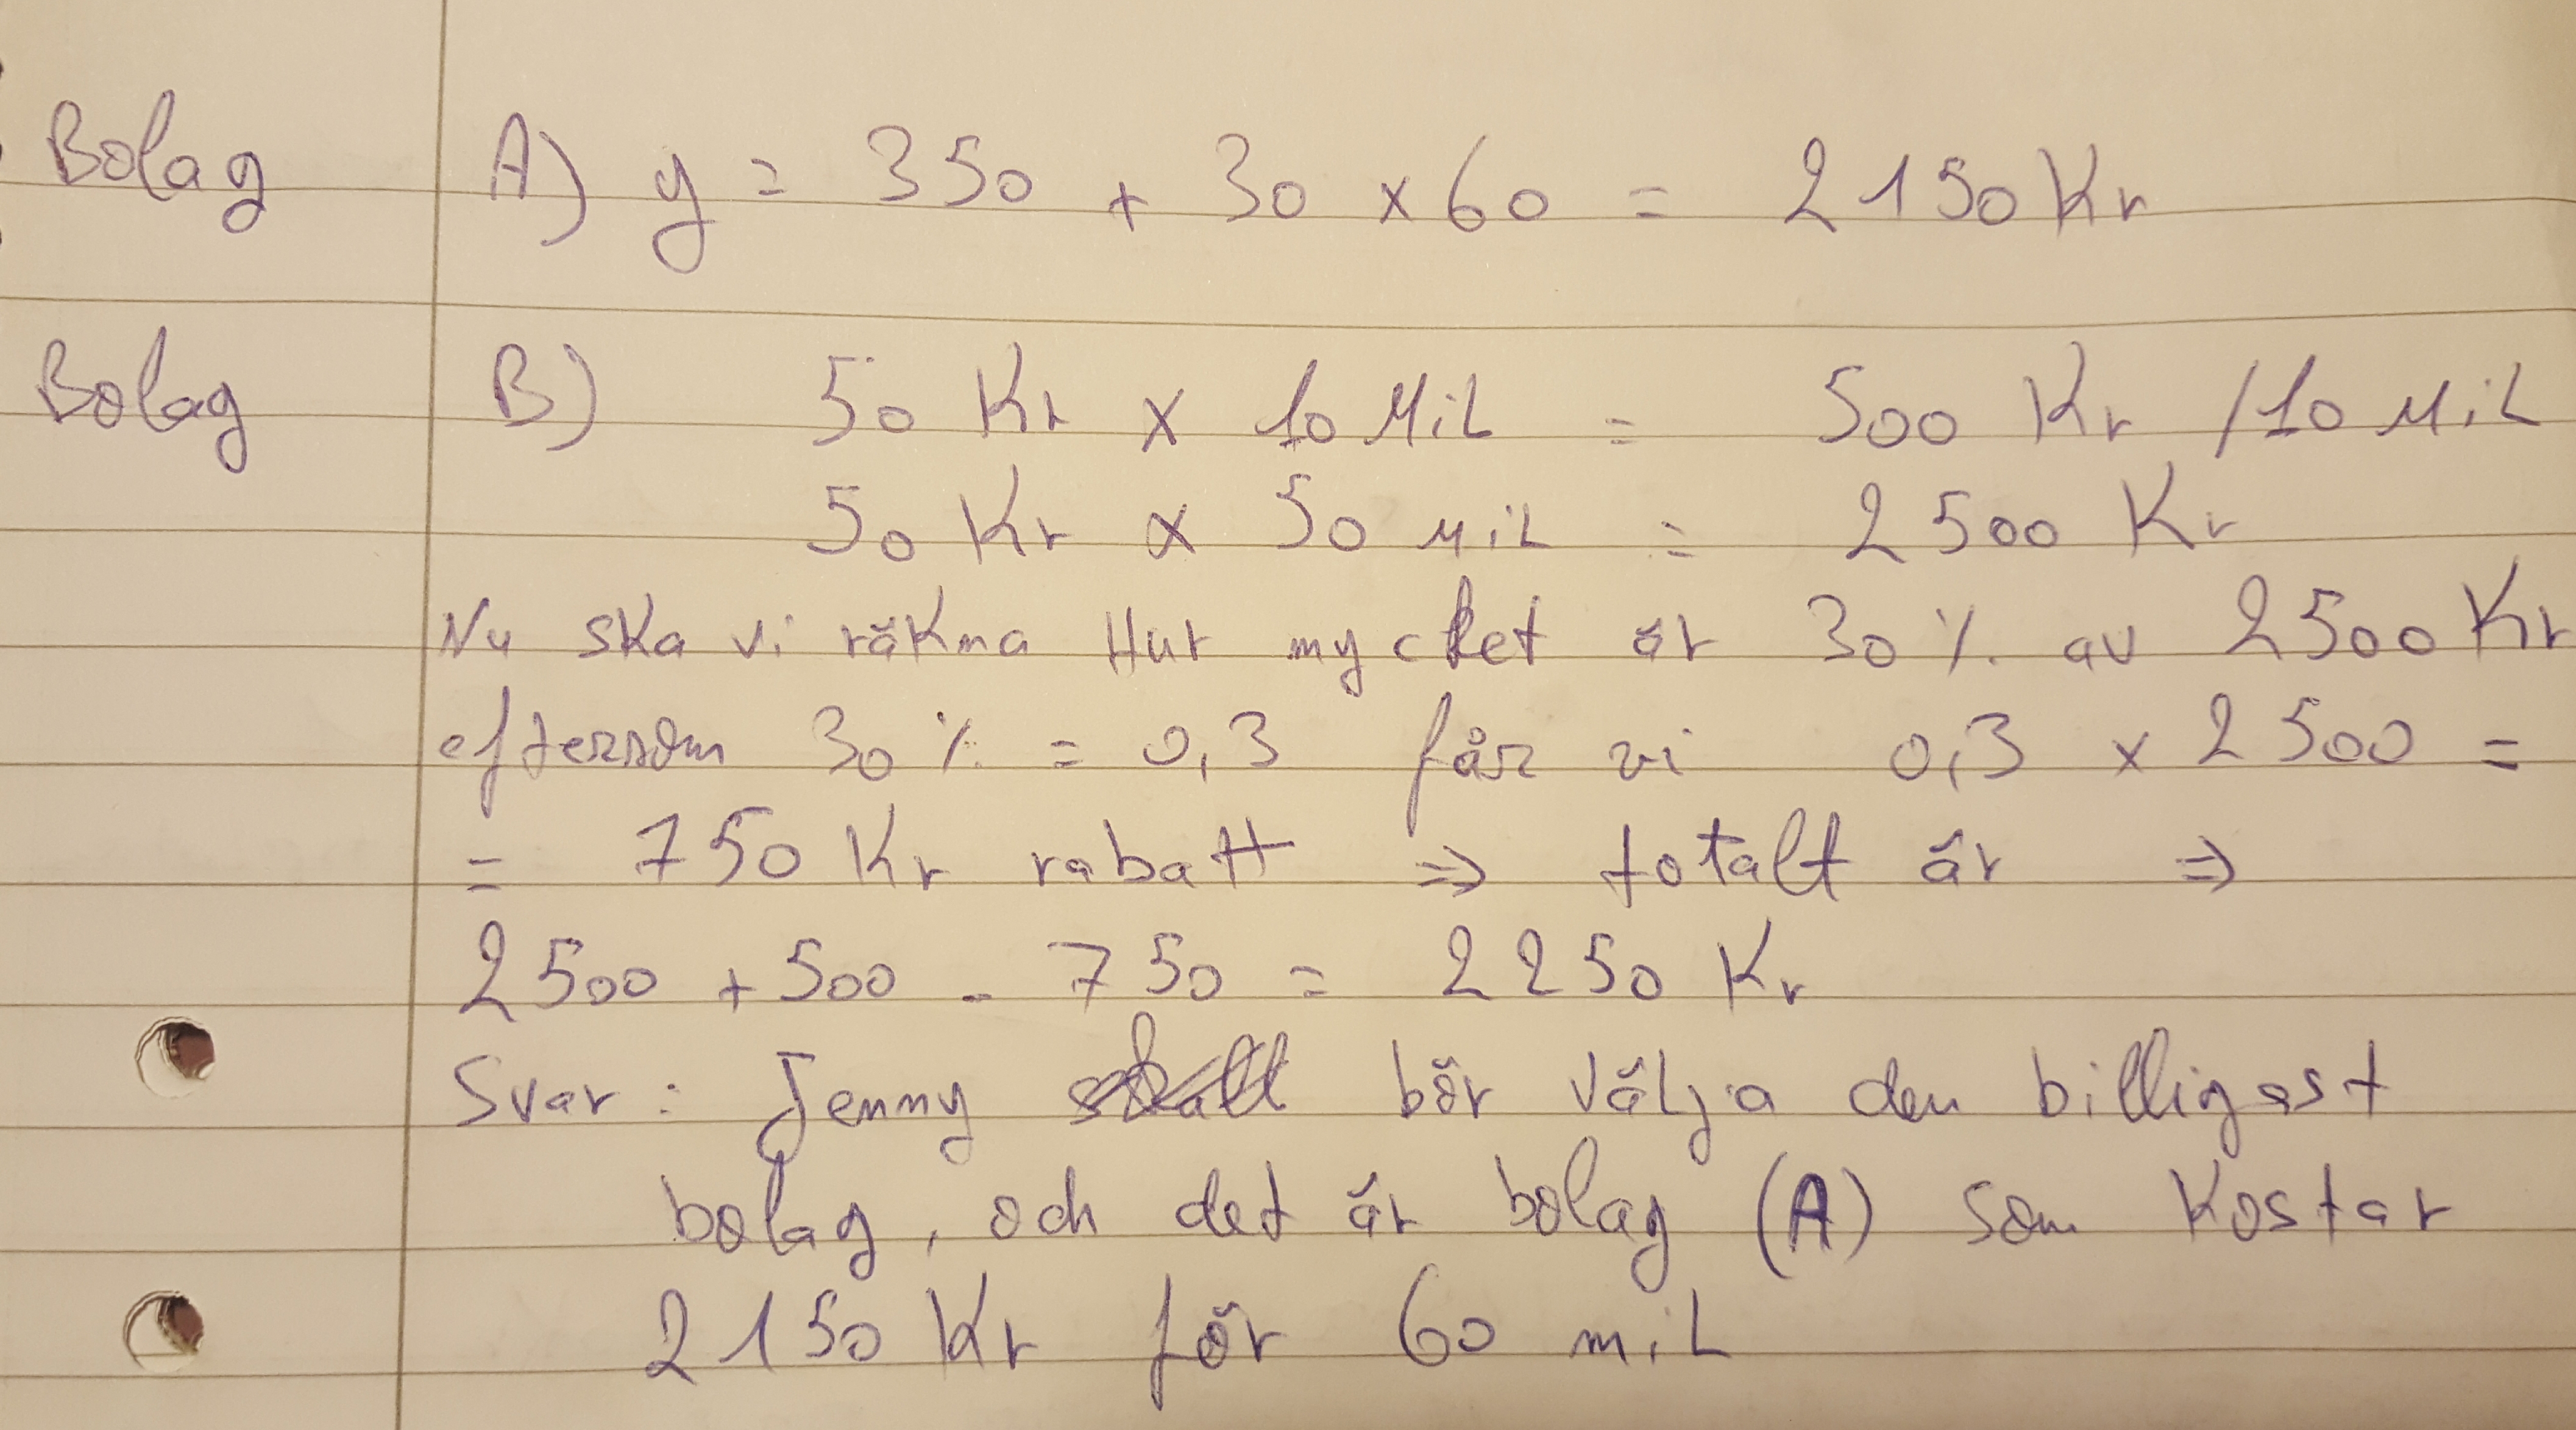 Bolag A) y = 350 + 30 × 60 = 2150 Kr
Bolag B) 50 Kr × 10 Mil = 500 Kr /10 Mil
50 Kr × 50 Mil = 2500 Kr
Nu ska vi räkna Hur mycket är 30 % av 2500 Kr
eftersom 30 % = 0,3 får vi 0,3 × 2500 =
= 750 Kr rabatt ⇒ totalt är ⇒
2500 + 500 - 750 = 2250 Kr
Svar : Jenny bör välja den billigast
bolag, och det är bolag (A) som Kostar
2150 Kr för 60 mil